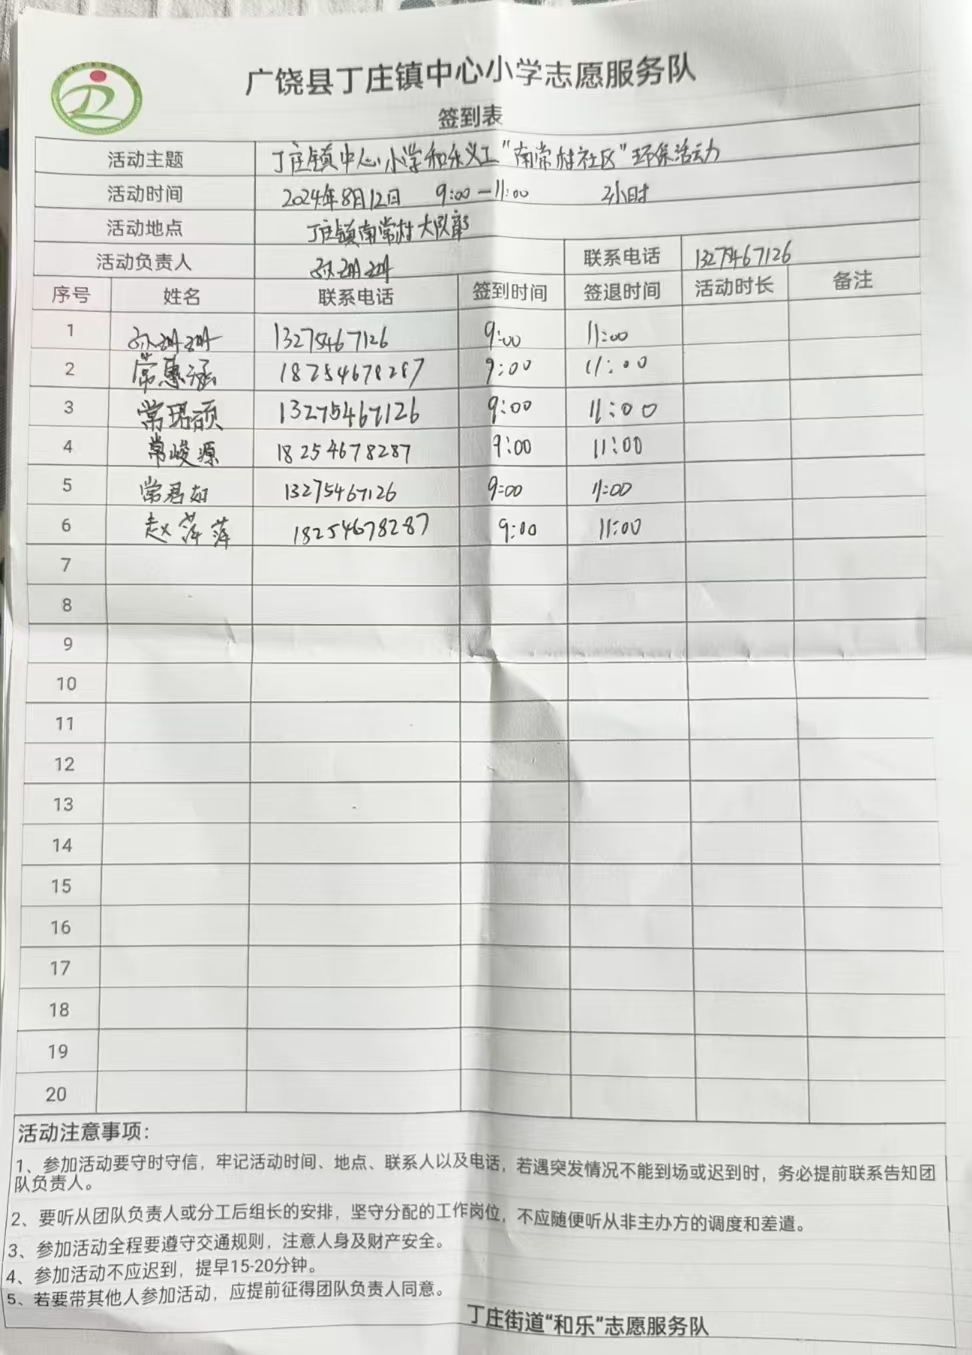 广饶县丁庄镇中心小学志愿服务队
签到表
活动主题 丁庄镇中心小学和乐义工“南常村社区”环保活动
活动时间 2024年8月12日 9:00—11:00 2小时
活动地点 丁庄镇南常村大队部
活动负责人 孙珊珊 联系电话 13275467126
序号 姓名 联系电话 签到时间 签退时间 活动时长 备注
1 孙珊珊 13275467126 9:00 11:00
2 常惠涵 18254678287 9:00 11:00
3 常珺硕 13275467126 9:00 11:00
4 常峻源 18254678287 9:00 11:00
5 常君如 13275467126 9:00 11:00
6 赵萍萍 18254678287 9:00 11:00
7
8
9
10
11
12
13
14
15
16
17
18
19
20
活动注意事项：
1、参加活动要守时守信，牢记活动时间、地点、联系人以及电话，若遇突发情况不能到场或迟到时，务必提前联系告知团
队负责人。
2、要听从团队负责人或分工后组长的安排，坚守分配的工作岗位，不应随便听从非主办方的调度和差遣。
3、参加活动全程要遵守交通规则，注意人身及财产安全。
4、参加活动不应迟到，提早15-20分钟。
5、若要带其他人参加活动，应提前征得团队负责人同意。
丁庄街道“和乐”志愿服务队